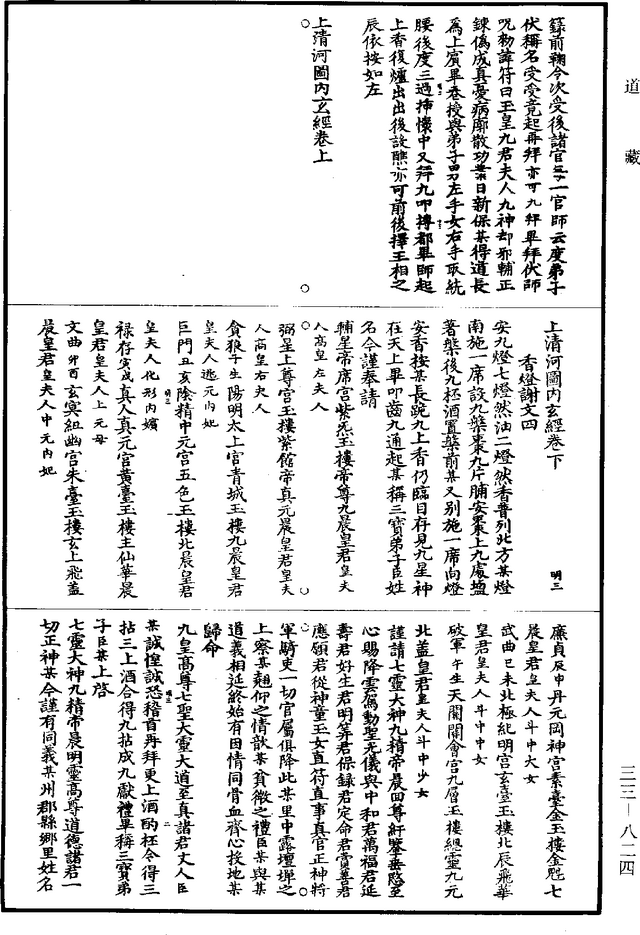 道藏
籙前鞠今次受後諸官每一官師云度弟子
伏稱名受受竟起再拜亦可九拜畢拜伏師
咒勑諱符曰玉皇九君夫人九神却邪輔正
鍊偽成真憂病廓散功業日新保某得道長
為上賓畢卷授與弟子男左手女右手取統
腰後度三過揷懷中又拜九叩搏都畢師起
上香復爐出出後設醮亦可前後擇王相之
辰依按如左
上清河圖內玄經卷上
上清河圖內玄經卷下
明三
香燈謝文四
安九燈七燈然油二燈然香普列北方某燈
南施一席設九槃棗九斤脯安棗上九處塩
著槃後九杯酒置槃前某又別施一席向燈
安香按某長跪九上香仍臨目存見九星神
在天上畢叩齒九通起某稱三寶弟子臣姓
名今謹奉請
輔星帝席宮紫炁玉樓帝尊九晨皇君皇夫
人高皇左夫人
弼星上尊宮玉樓紫館帝真元晨皇君皇夫
人高皇右夫人
貪狼子生陽明太上宮青城玉樓九晨皇君
皇夫人逃元內妃
巨門丑亥陰精中元宮五色玉樓北晨皇君
皇夫人化形內嬪
祿存寅戌真人真元宮黃臺玉樓主仙華晨
皇君皇夫人上元母
文曲卯酉玄冥紐幽宮朱臺玉樓玄上飛蓋
晨皇君皇夫人中元內妃
廉貞辰申丹元岡神宮素臺金玉樓金魁七
晨皇君皇夫人斗中大女
武曲巳未北極紀明宮玄臺玉樓北辰飛華
皇君皇夫人斗中中女
破軍午生天關闓會宮九層玉樓總靈九元
北蓋皇君皇夫人斗中少女
謹請七靈大神九精帝晨四尊紆鑒垂愍至
心賜降雲駕動聖无儀與中和君萬福君延
壽君好生君明筭君保錄君定命君賞善君
應願君從神童玉女直符直事真官正神將
軍騎吏一切官屬俱降此某里中露壇墠之
上察某翹仰之情歆某貧微之禮臣某與某
道義相延終始有因情同骨血齊心投地某
歸命
九皇高尊七聖大靈大道至真諸君丈人臣
某誠惶誠恐稽首再拜更上酒酌杯令得三
拈三上酒合得九拈成九獻禮畢稱三寶弟
子臣某上啓
七靈大神九精帝晨明靈高尊道德諸君一
切正神某今謹有同義某州郡縣鄉里姓名
三三—八二四